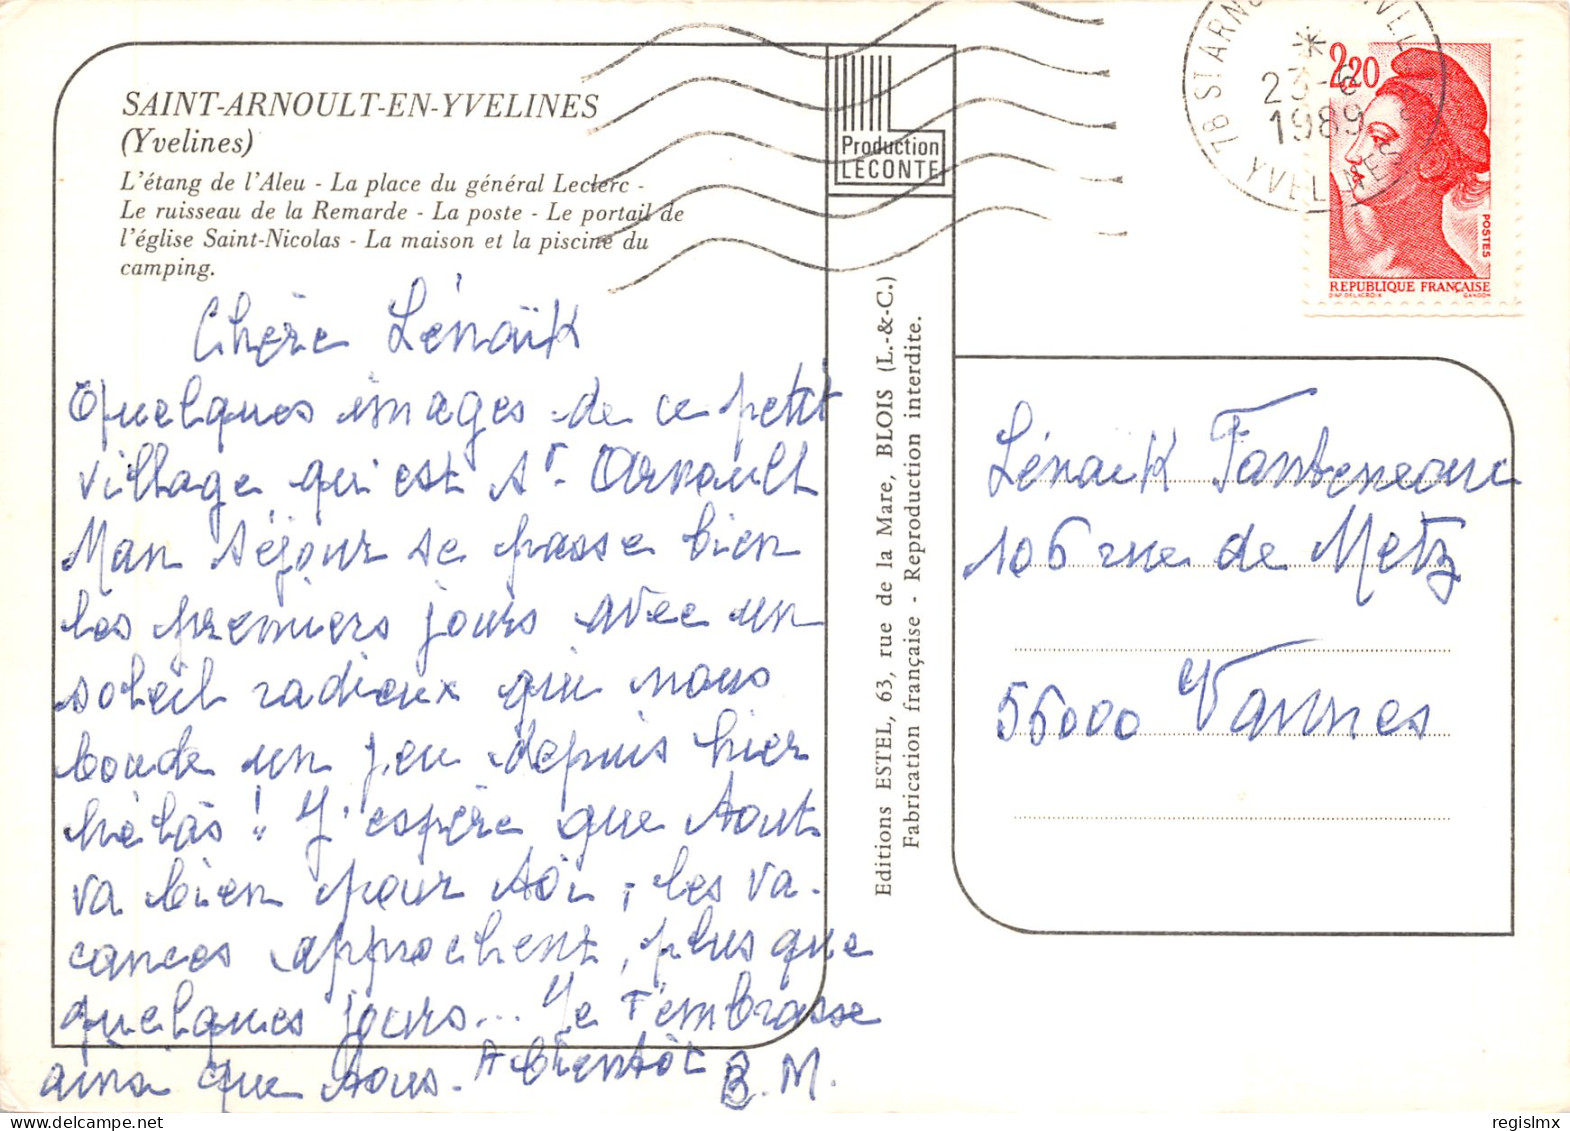 SAINT-ARNOULT-EN-YVELINES
(Yvelines)
L'étang de l'Aleu - La place du général Leclerc -
Le ruisseau de la Remarde - La poste - Le portail de
l'église Saint-Nicolas - La maison et la piscine du
camping.
Chère Lénaïk
Quelques images de ce petit
village qui est St. Arnoult
Mon séjour se passe bien
les premiers jours avec un
soleil radieux qui nous
boude un peu depuis hier
hélàs ! J'espère que tout
va bien pour toi, les va-
cances approchent, plus que
quelques jours... Je t'embrasse
ainsi que tous. A bientôt
B.M.
Production
LECONTE
Editions ESTEL, 63, rue de la Mare, BLOIS (L.-&-C.)
Fabrication française - Reproduction interdite.
78 ST ARNOU
YVELINES
23-6
1989
2,20
POSTES
REPUBLIQUE FRANÇAISE
D'AP. DELACROIX GANDON
Lénaik
106 rue de Metz
56000 Vannes
regislmx